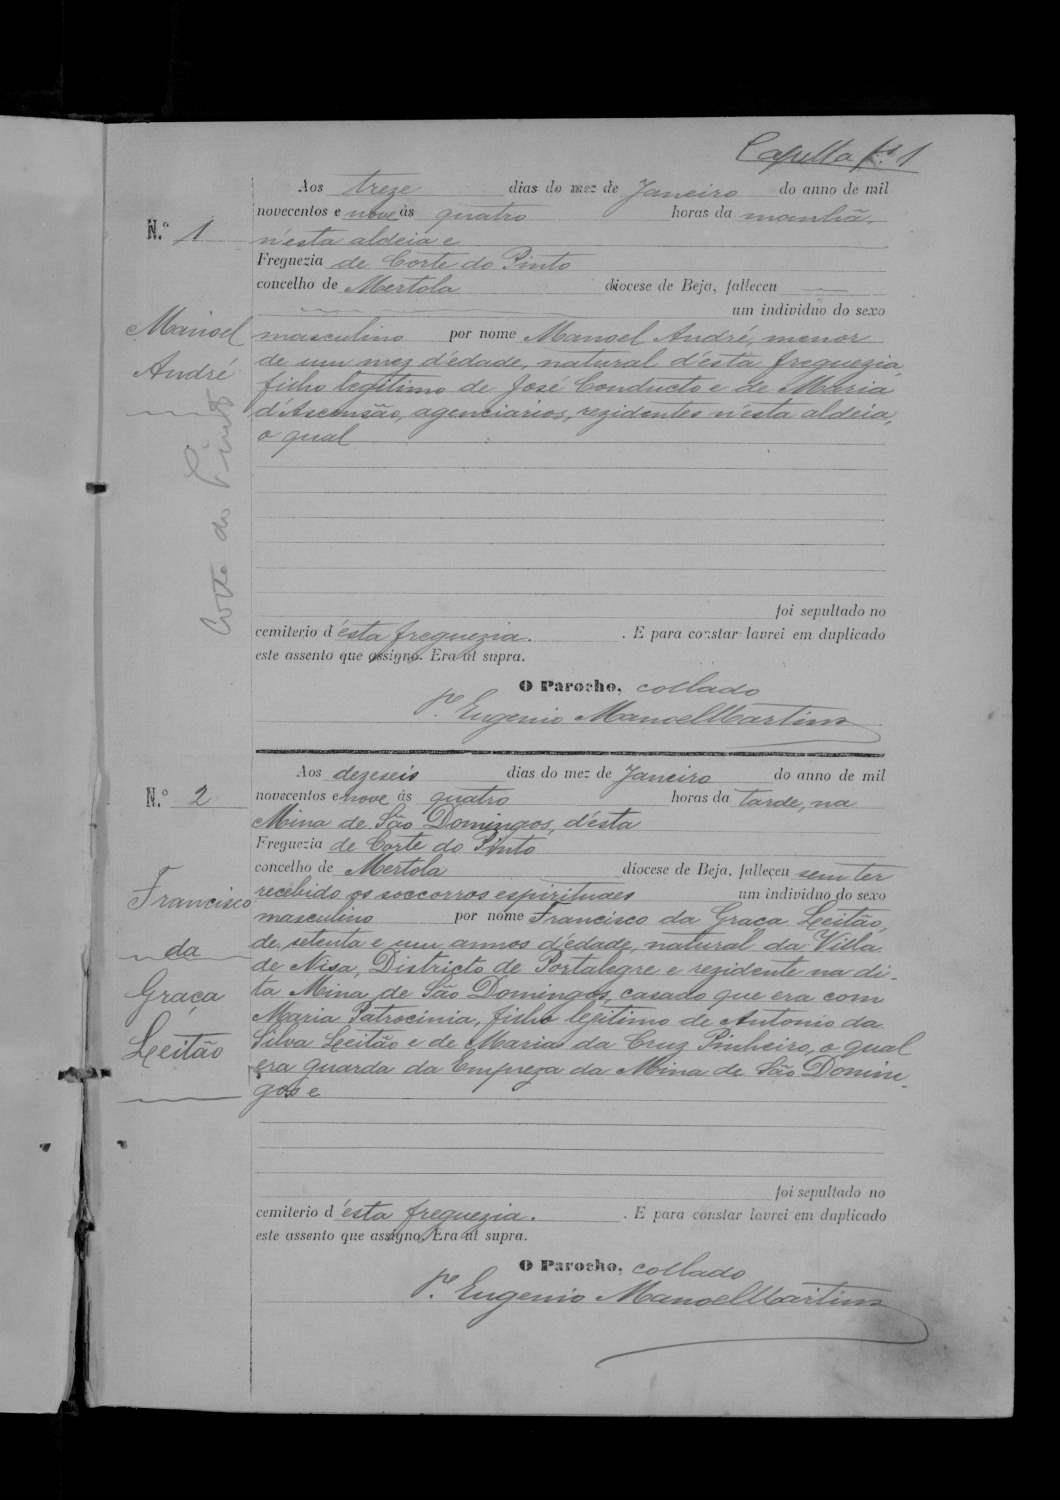 Capella fs. 1
Aos treze dias do mez de Janeiro do anno de mil
novecentos e nove ás quatro horas da manhã.
N.º 1
n'esta aldeia e
Freguezia de Corte do Pinto
concelho de Mertola diocese de Beja, falleceu
um individuo do sexo
Manoel
André
Corte do Pinto
masculino por nome Manoel André, menor
de um mez d'edade, natural d'esta freguezia,
filho legitimo de José Conducto e de Maria
d'Ascensão, agenciarios, rezidentes n'esta aldeia,
o qual
foi sepultado no
cemiterio d'esta freguezia. . E para constar lavrei em duplicado
este assento que assigno. Era ut supra.
O Parocho, collado
P.e Eugenio Manoel Martins
Aos dezeseis dias do mez de Janeiro do anno de mil
N.º 2
novecentos e nove ás quatro horas da tarde, na
Mina de São Domingos, d'esta
Freguezia de Corte do Pinto
concelho de Mertola diocese de Beja, falleceu sem ter
recebido os soccorros espirituaes um individuo do sexo
Francisco
da
Graça
Leitão
masculino por nome Francisco da Graça Leitão,
de setenta e um annos d'edade, natural da Villa
de Nisa, Districto de Portalegre e rezidente na di-
ta Mina de São Domingos, casado que era com
Maria Patrocinia, filho legitimo de Antonio da
Silva Leitão e de Maria da Cruz Pinheiro, o qual
era guarda da Empreza da Mina de São Domin-
gos e
foi sepultado no
cemiterio d'esta freguezia. . E para constar lavrei em duplicado
este assento que assigno. Era ut supra.
O Parocho, collado
P.e Eugenio Manoel Martins